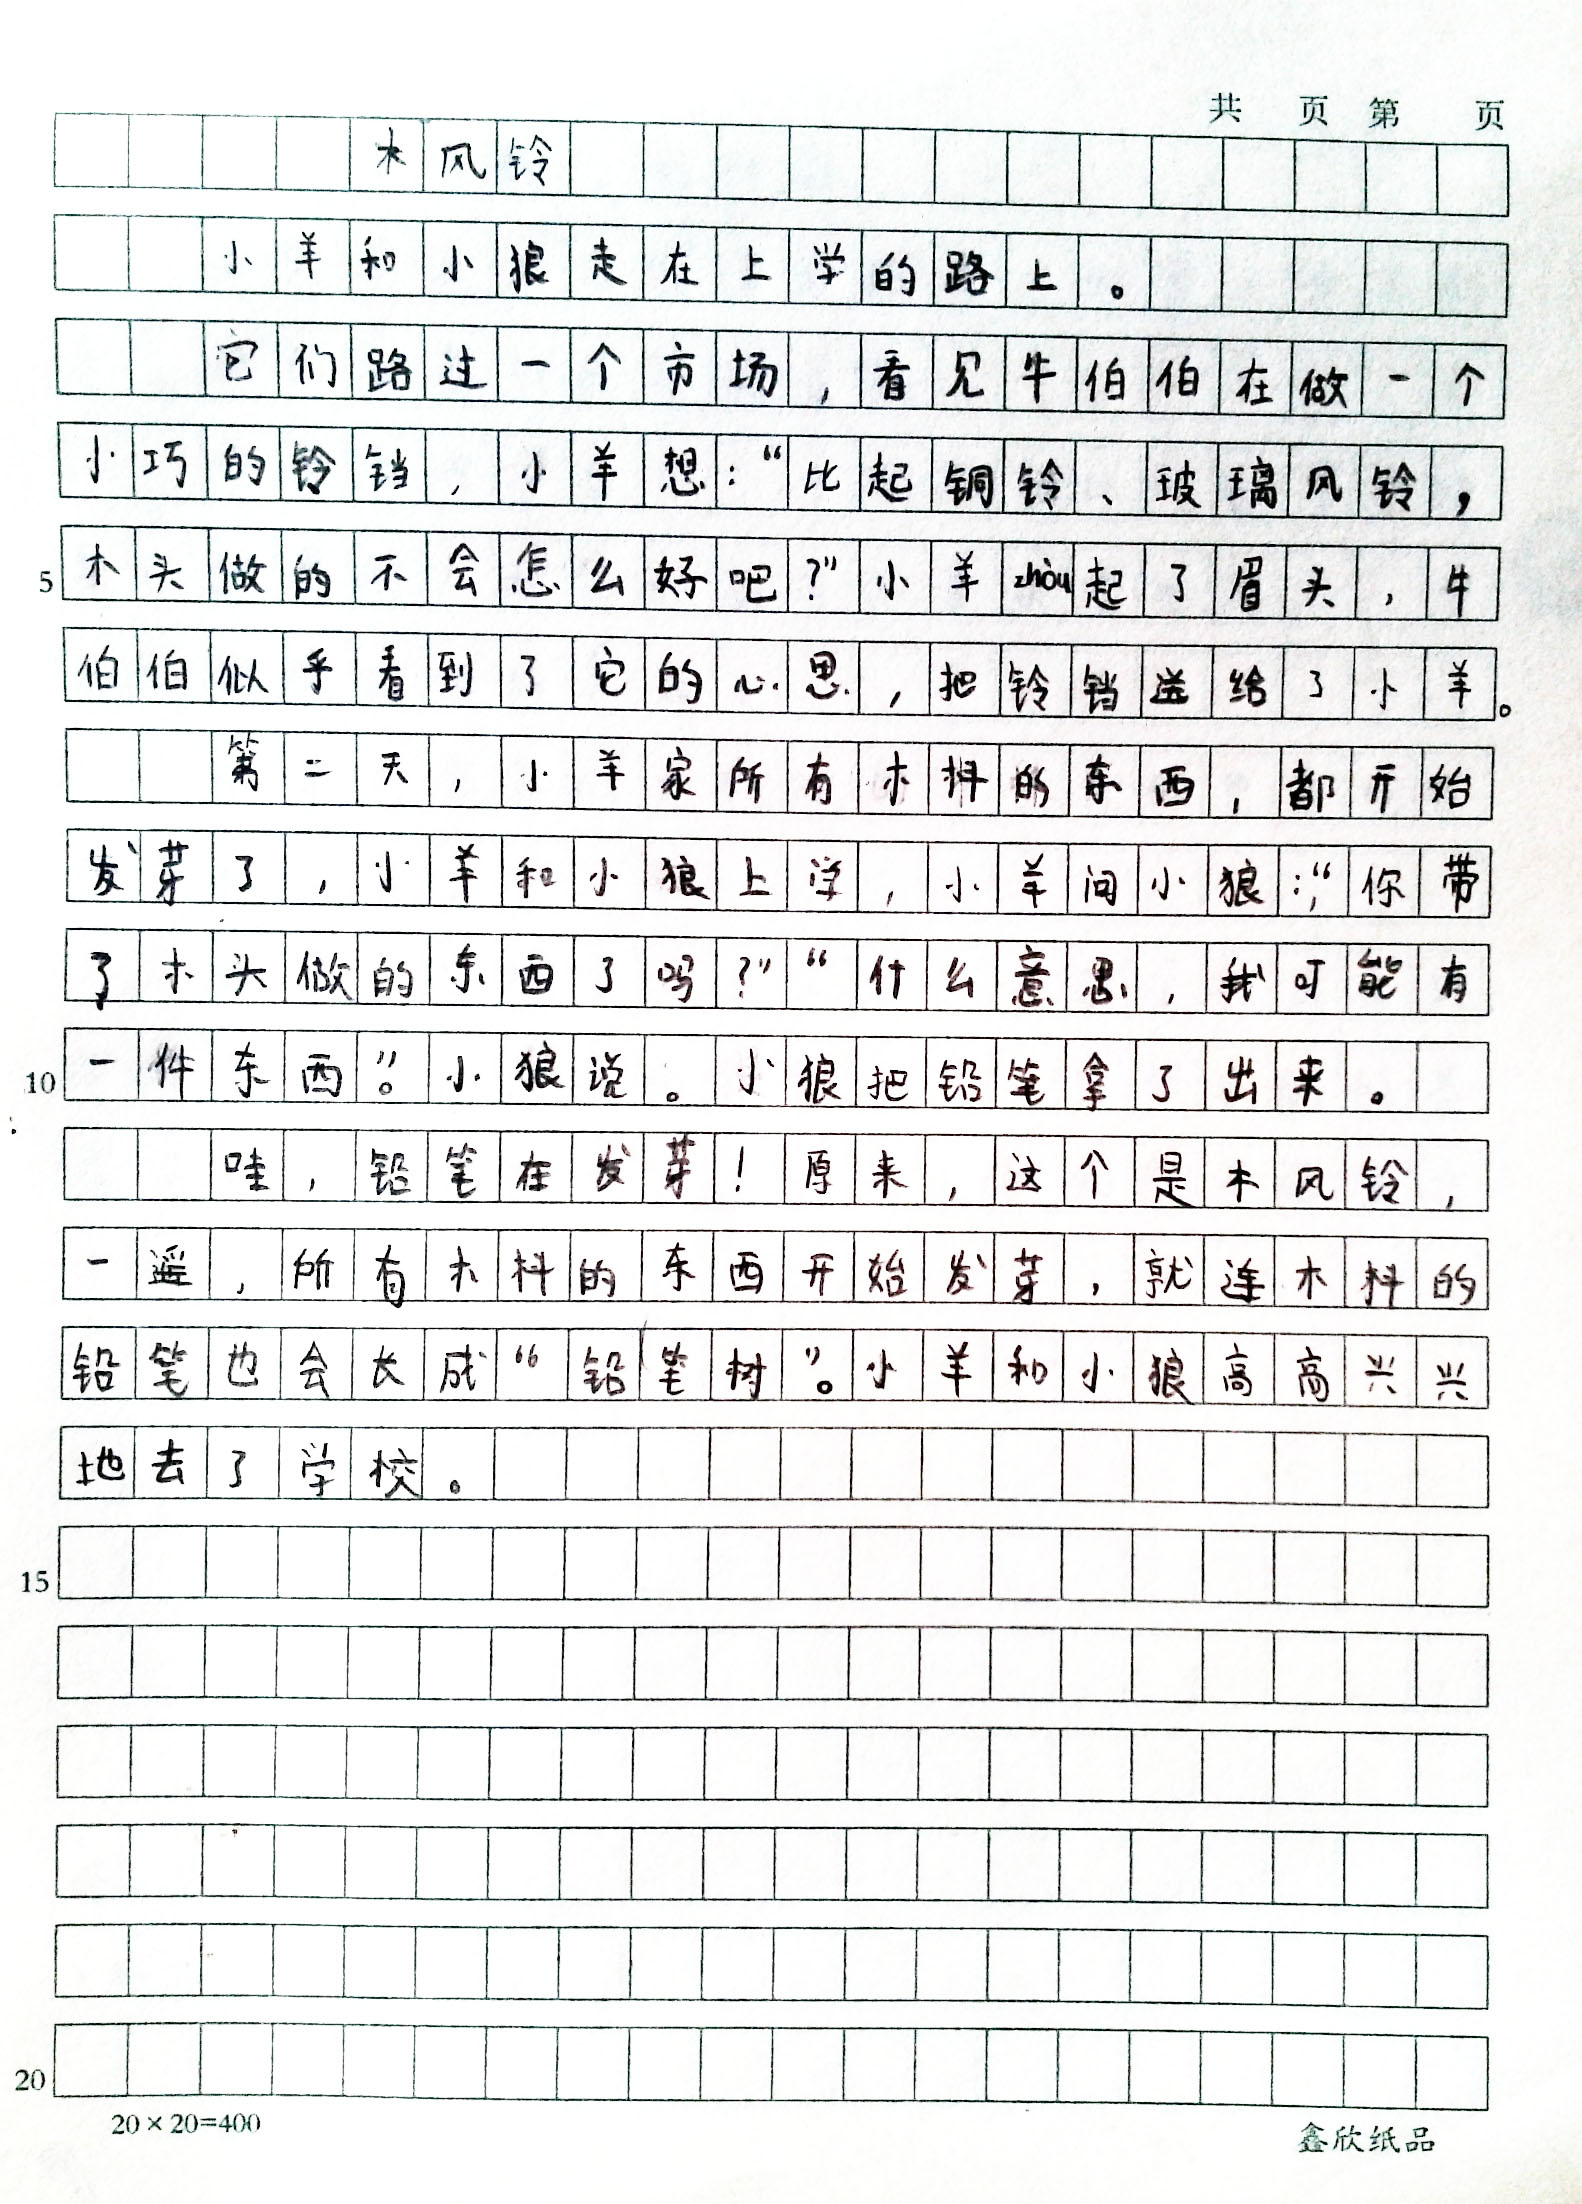 共 页 第 页
木风铃
小羊和小狼走在上学的路上。
它们路过一个市场,看见牛伯伯在做一个
小巧的铃铛,小羊想:“比起铜铃、玻璃风铃,
5 木头做的不会怎么好吧?”小羊zhòu起了眉头,牛
伯伯似乎看到了它的心思,把铃铛送给了小羊。
第二天,小羊家所有木料的东西,都开始
发芽了,小羊和小狼上学,小羊问小狼:“你带
了木头做的东西了吗?”“什么意思,我可能有
10 一件东西”。小狼说。小狼把铅笔拿了出来。
哇,铅笔在发芽!原来,这个是木风铃,
一遥,所有木料的东西开始发芽,就连木料的
铅笔也会长成“铅笔树”。小羊和小狼高高兴兴
地去了学校。
15
20
20×20=400 鑫欣纸品